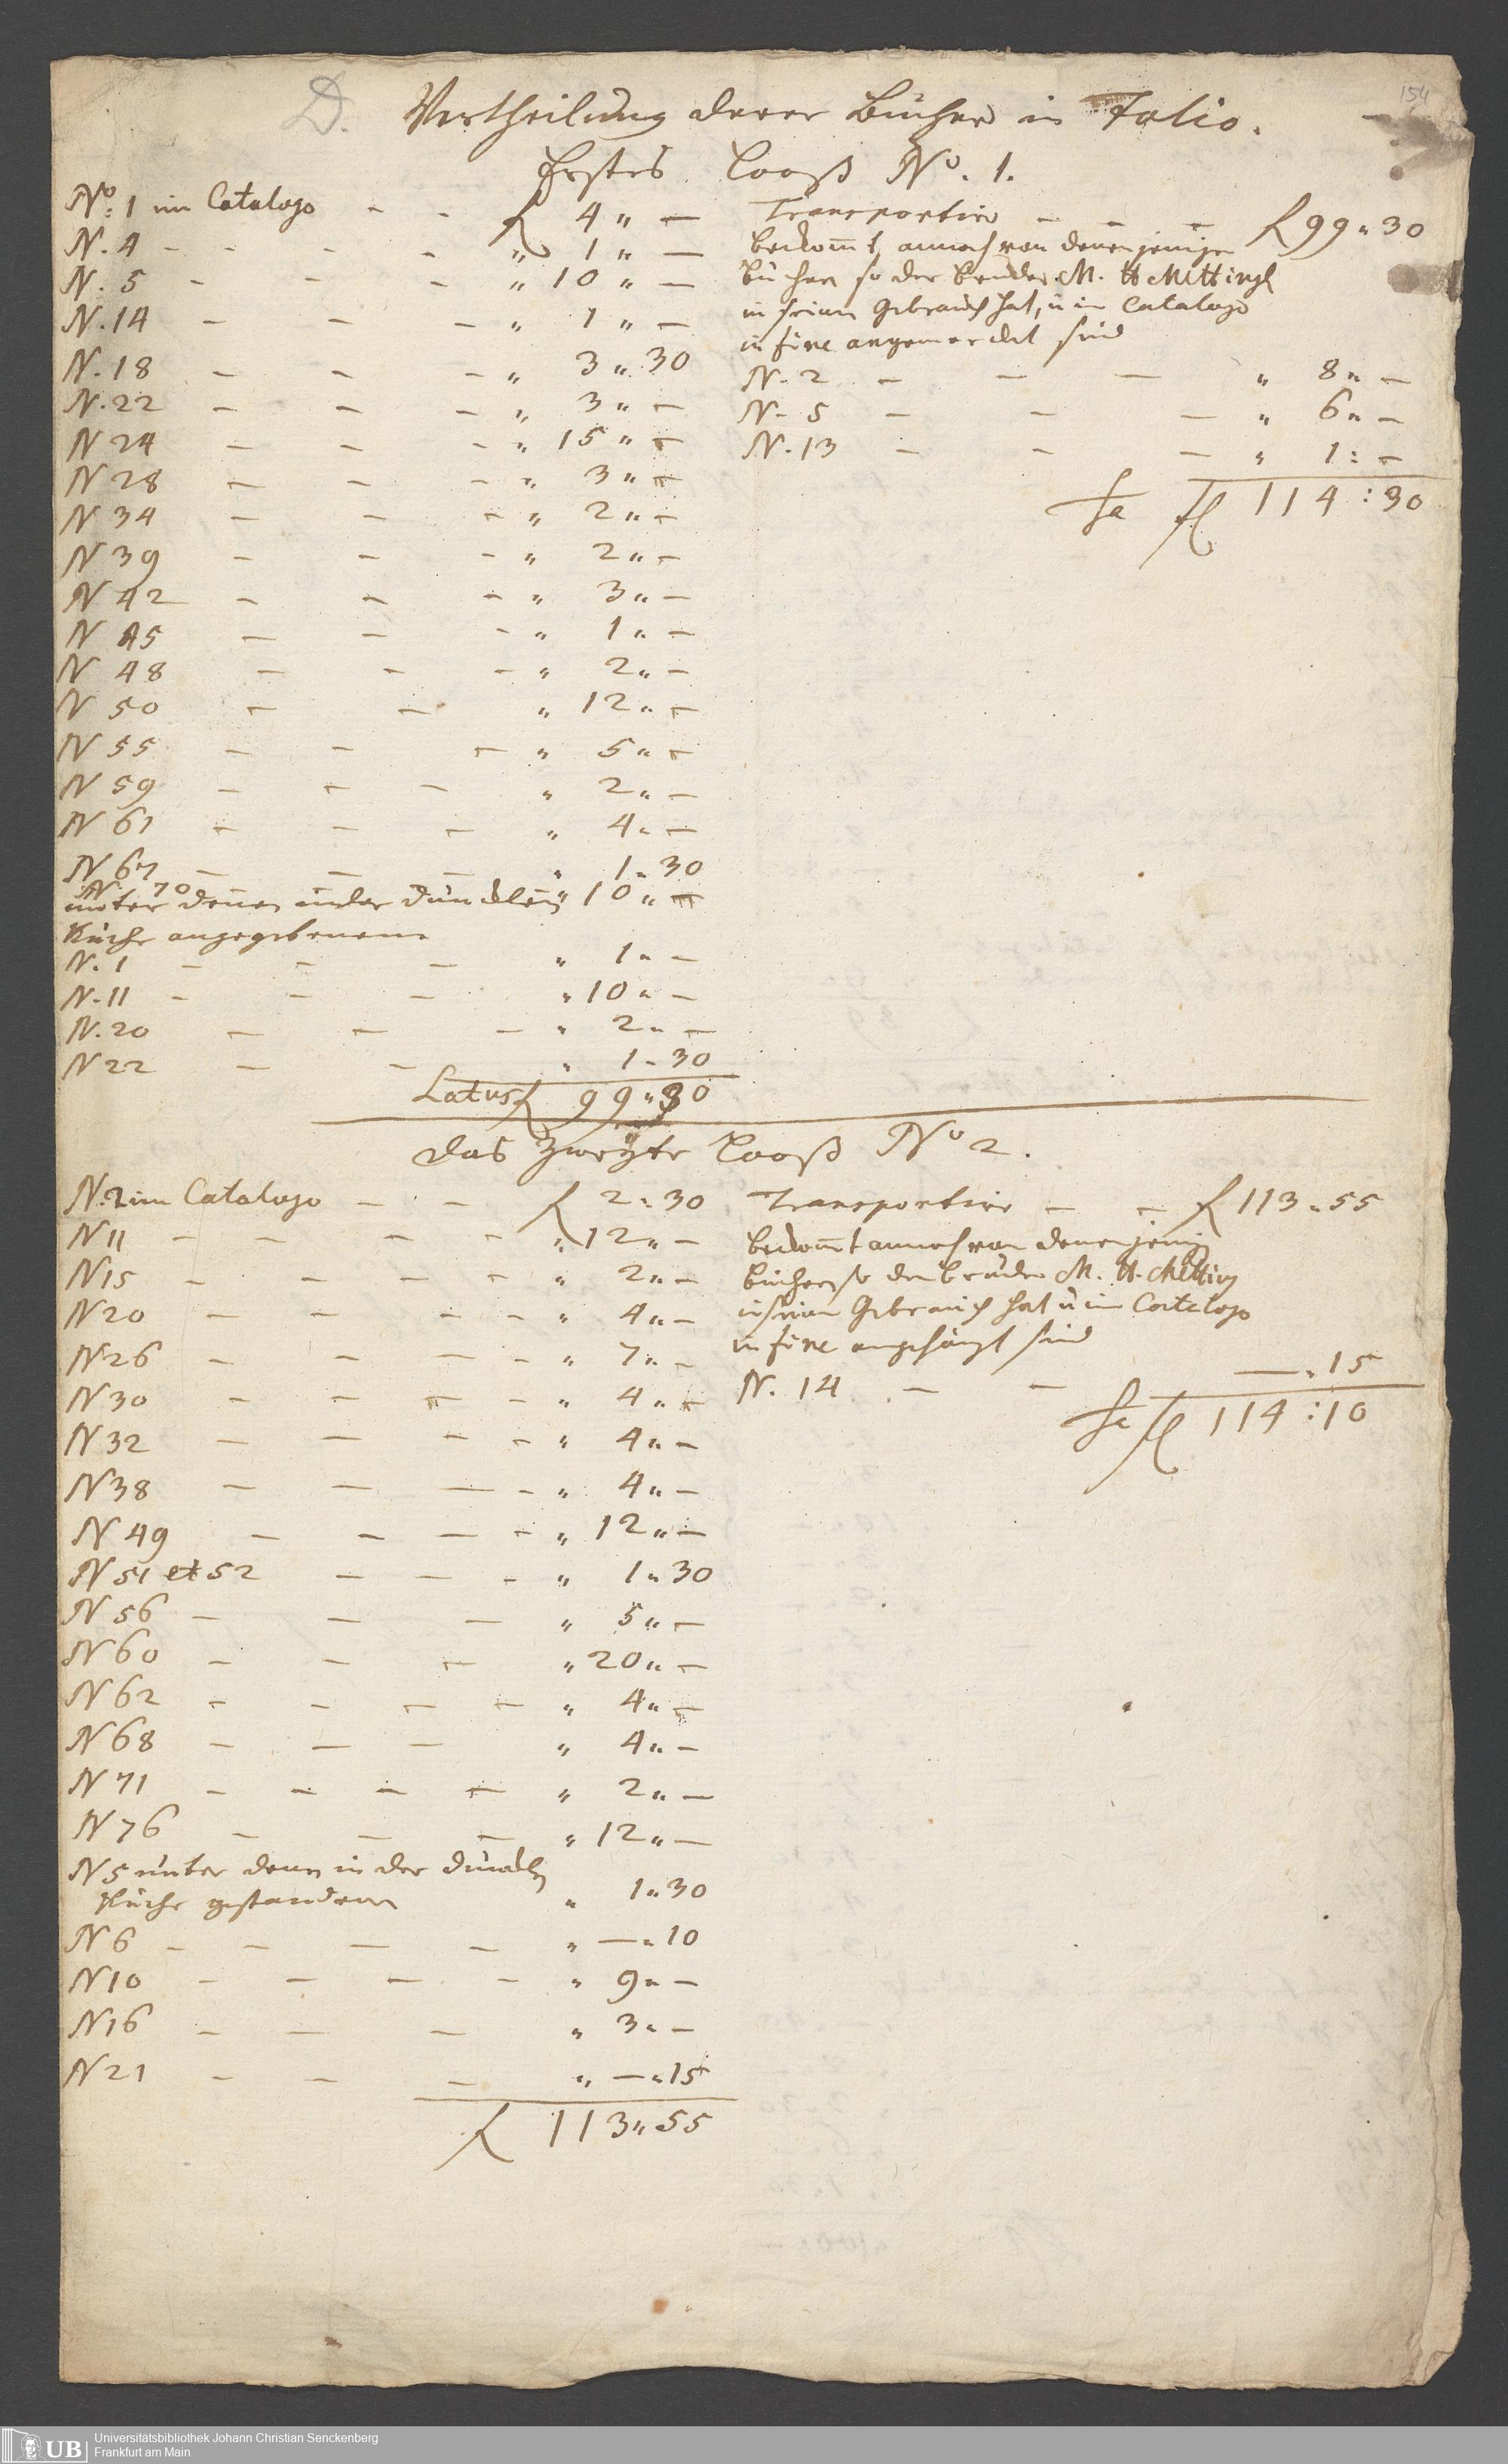 154
D. Vertheilung derer Bücher in Folio.
Erstes Looß No. 1.
No: 1 im Catalogo - - fl 4 " -
N. 4 - - - - " 1 " -
N. 5 - - - " 10 " -
N. 14 - - - " 1 " -
N. 18 - - - " 3 " 30
N. 22 - - - " 3 " -
N 24 - - - " 15 " -
N 28 - - - " 3 " -
N 34 - - - " 2 " -
N 39 - - - " 2 " -
N 42 - - - " 3 " -
N 45 - - - " 1 " -
N 48 - - - " 2 " -
N 50 - - " 12 " -
N 55 - - - " 5 " -
N 59 - - - " 2 " -
N 61 - - - " 4 " -
N 67 - - - " 1 " 30
N. 70 - - " 10 " -
unter denen in der dunckelen
Küche angegebenen
N. 1 - - - " 1 " -
N. 11 - - - " 10 " -
N. 20 - - - " 2 " -
N 22 - - " 1 " 30
Latus fl 99 " 30
Transportire - - - fl 99 " 30
bekom̄t annoch von denenjenigen
bücher so der bruder M. H. Mettingh
in seinem Gebrauch hat, u im Catalogo
in fine angemercket sind
N. 2 - - - " 8 " -
N. 5 - - - " 6 " -
N. 13 - - - " 1 : -
Sa fl 114 : 30
das zweyte Looß No 2.
N. 2 im Catalogo - - - fl 2 " 30
N 11 - - - - " 12 " -
N 15 - - - - " 2 " -
N 20 - - - - " 4 " -
N 26 - - - - " 7 " -
N 30 - - - - " 4 " -
N 32 - - - - " 4 " -
N 38 - - - - " 4 " -
N 49 - - - - " 12 " -
N 51 et 52 - - - " 1 " 30
N 56 - - - " 5 " -
N 60 - - - " 20 " -
N 62 - - - - " 4 " -
N 68 - - - " 4 " -
N 71 - - - - " 2 " -
N 76 - - - " 12 " -
N 5 unter denen in der dunckeln
Küche gestandenen " 1 " 30
N 6 - - - - " - " 10
N 10 - - - - " 9 " -
N 16 - - - " 3 " -
N 21 - - - " - " 15
fl 113 " 55
Transportire - - fl 113 " 55
bekom̄t annoch von denenjenig
bücher so der bruder M. H. Metting
in seinem Gebrauch hat u im Catalogo
in fine angehängt sind
N. 14 - - - " 15
Sa fl 114 : 10
UB Universitätsbibliothek Johann Christian Senckenberg
Frankfurt am Main